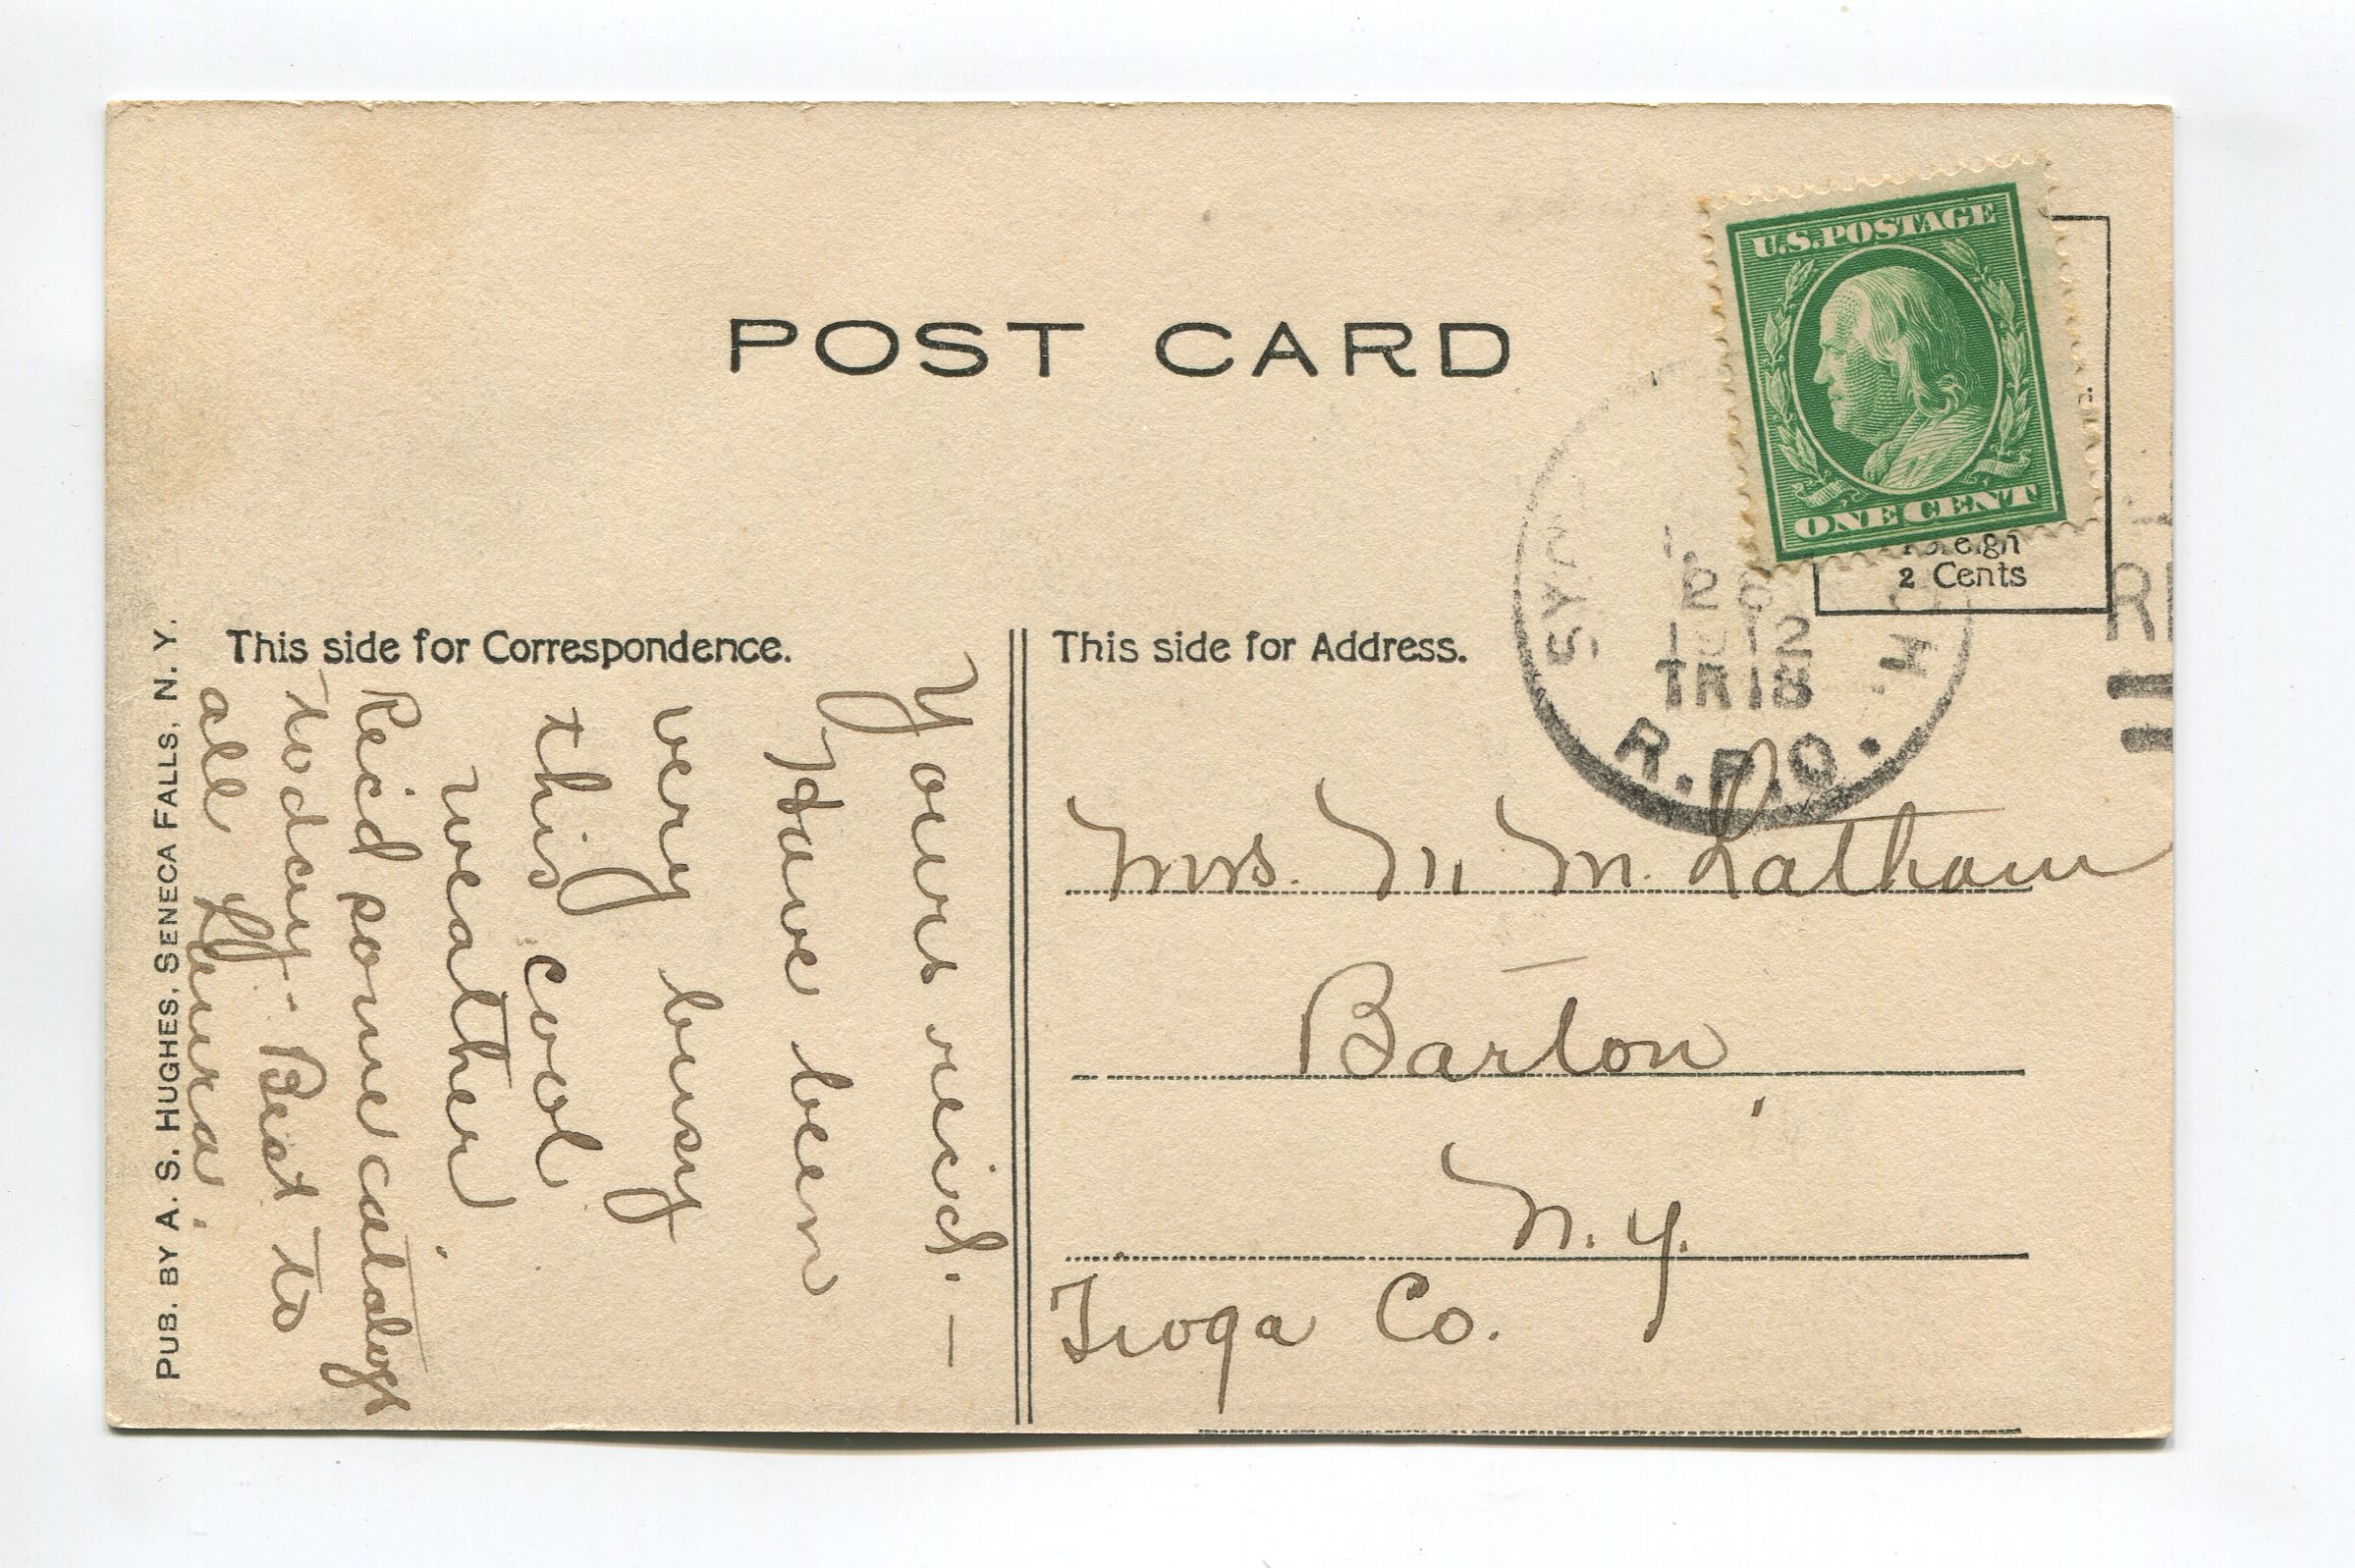 POST CARD
U.S. POSTAGE
ONE CENT
Foreign
2 Cents
SY
26
1912
TR 18
R.P.O.
This side for Correspondence.
This side for Address.
Yours reid. —
Have been
very busy
this cool
weather.
Recid some catalogs
today - Best to
all Laura.
Mrs. M. Latham
Barton,
N. Y.
Tioga Co.
PUB. BY A. S. HUGHES, SENECA FALLS, N. Y.